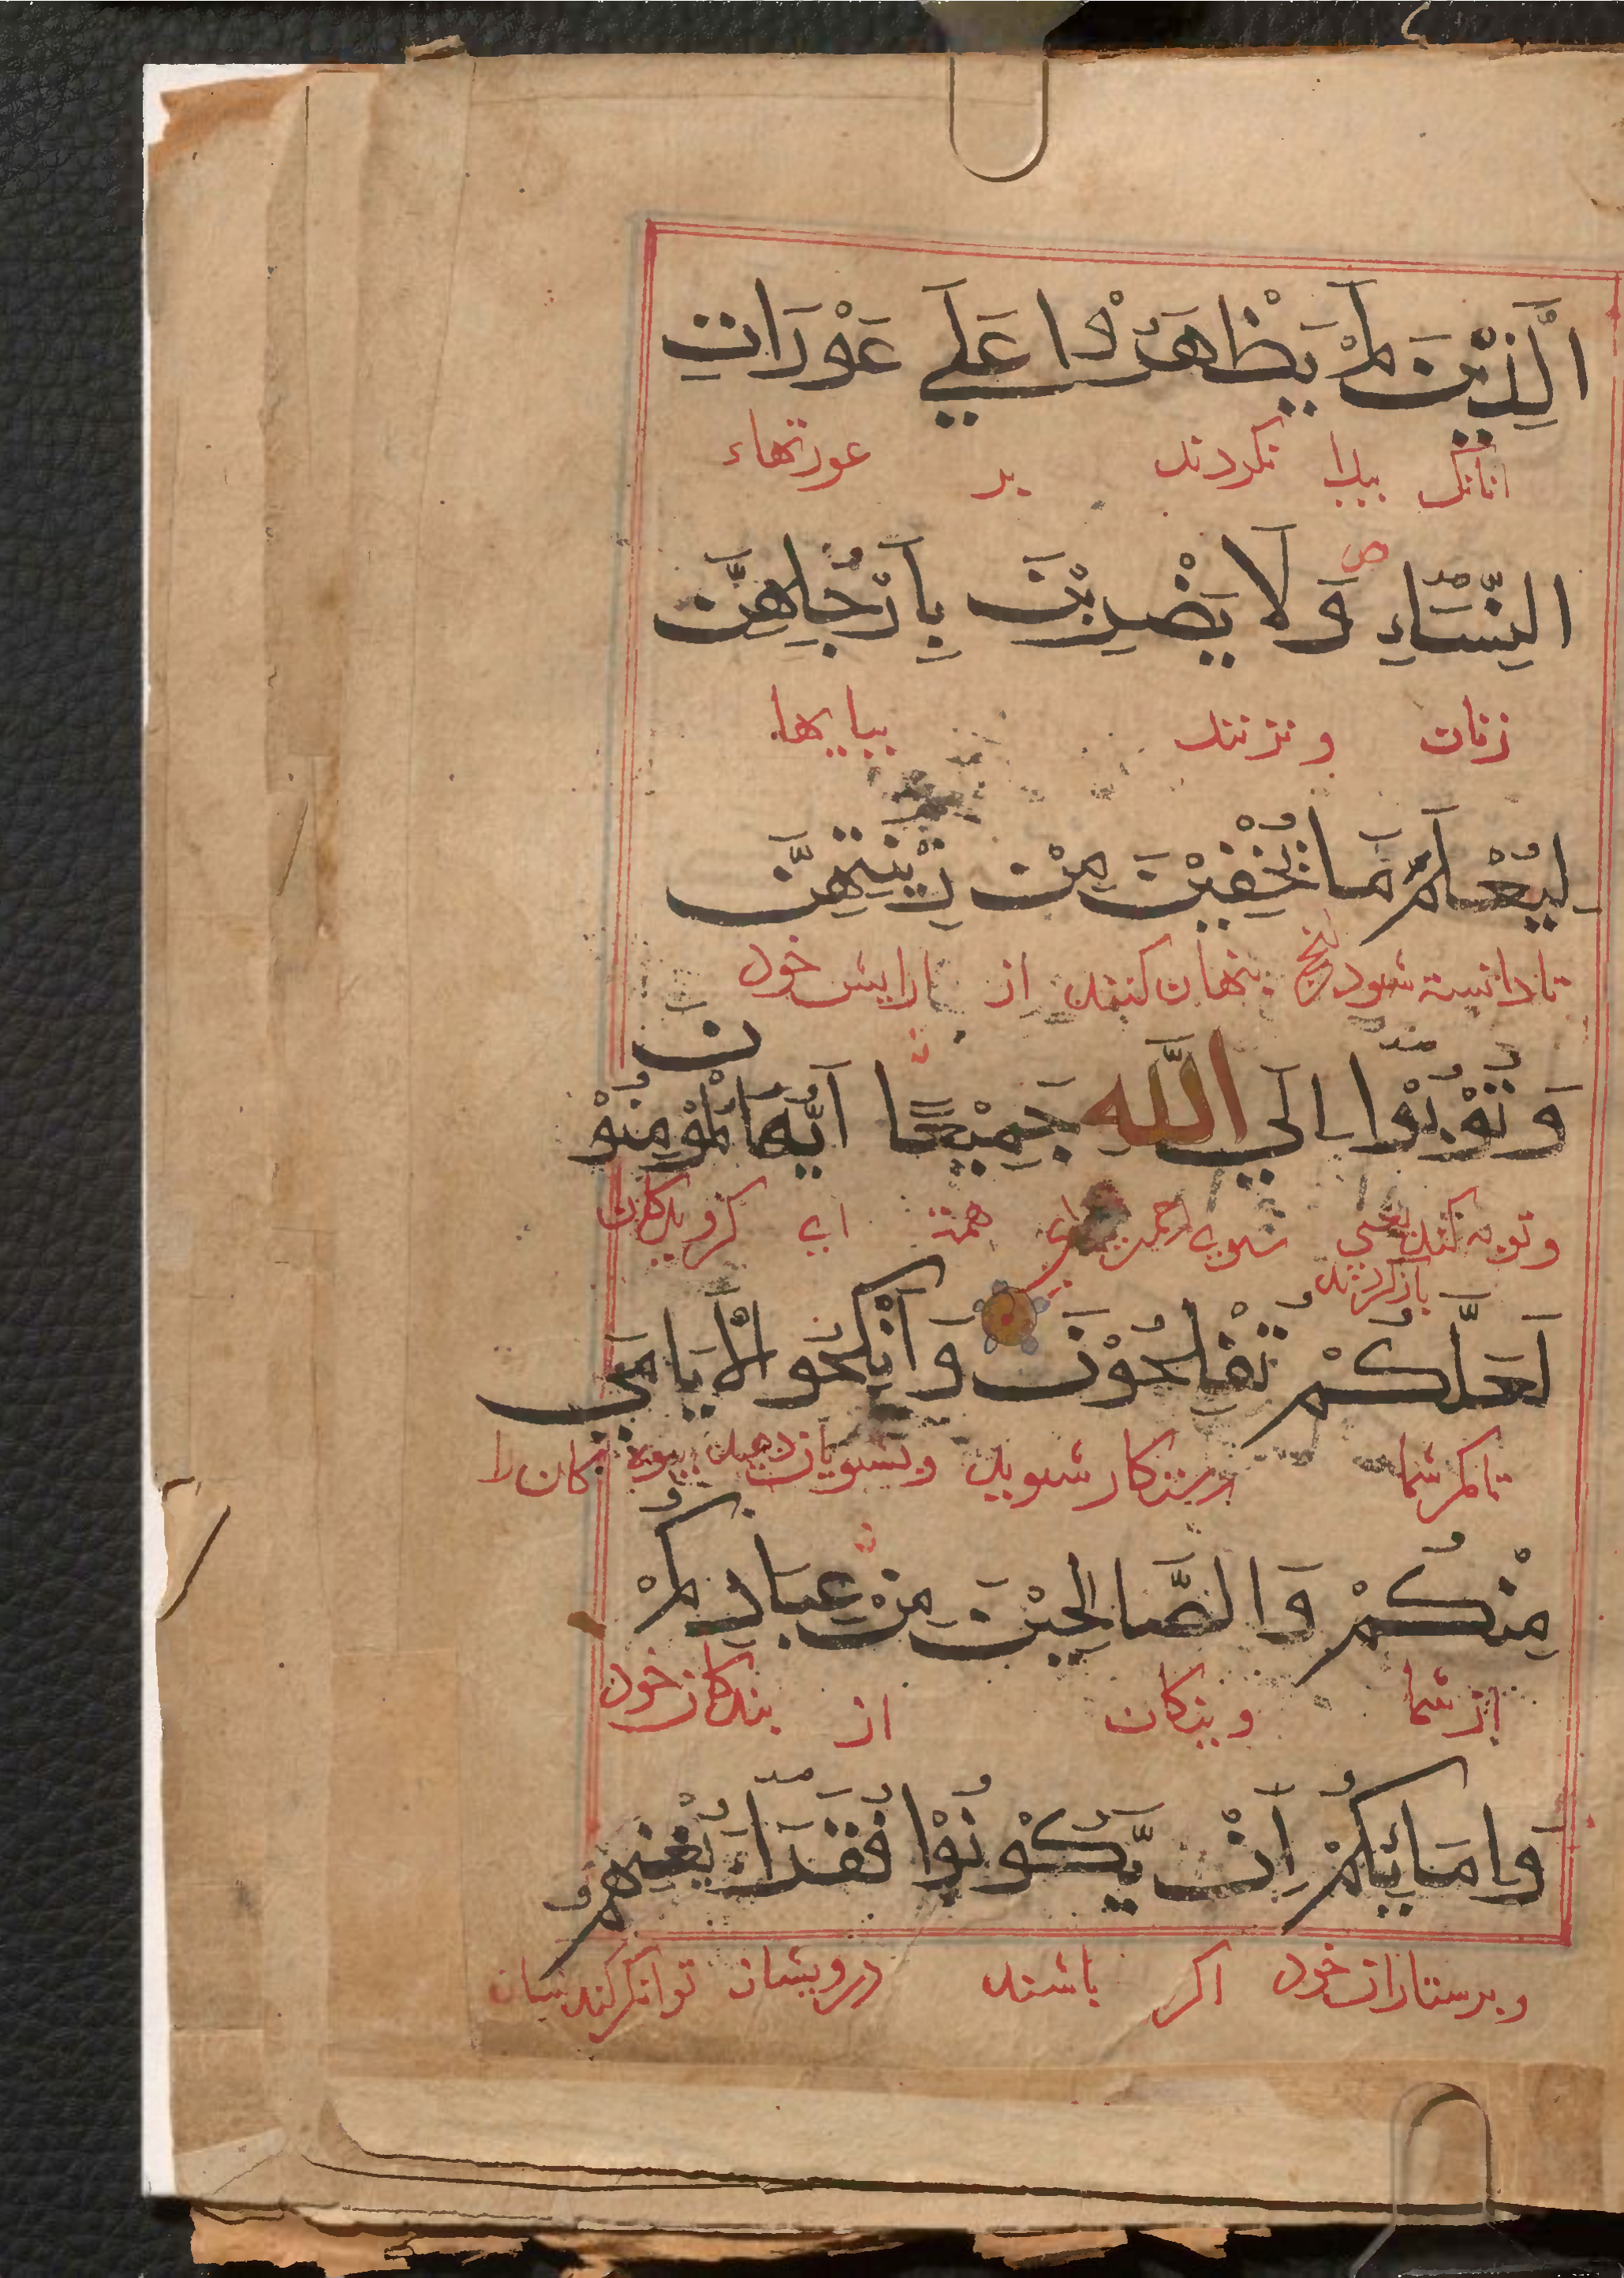 الَّذِيْنَ لَمْ يَظْهَرُوْا عَلَي عَوْرَاتِ
انانک پیدا نکردند بر عورتهاء
النِّسَاءِ وَلَا يَضْرِبْنَ بِاَرْجُلِهِنَّ
زنان و نزنند بپایها
لِيُعْلَمَ مَا يُخْفِيْنَ مِنْ زِيْنَتِهِنَّ
تا دانسته شود انچ پنهان کنند از ارایش خود
وَتُوْبُوْا اِلَي اللّٰهِ جَمِيْعًا اَيُّهَا الْمُؤْمِنُوْنَ
و توبه کنید یعنی بسوی همه ای کرویدکان
باز کردید
لَعَلَّكُمْ تُفْلِحُوْنَ وَاَنْكِحُوا الْاَيَامَي
تا مکر شما رستکار شوید و بشویان دهید بیوه کان را
مِنْكُمْ وَالصَّالِحِيْنَ مِنْ عِبَادِكُمْ
از شما و نیکان از بندکان خود
وَاِمَائِكُمْ اِنْ يَّكُوْنُوْا فُقَرَاءَ يُغْنِهِمُ
و پرستاران خود اکر باشند درویشان توانکر کندشان